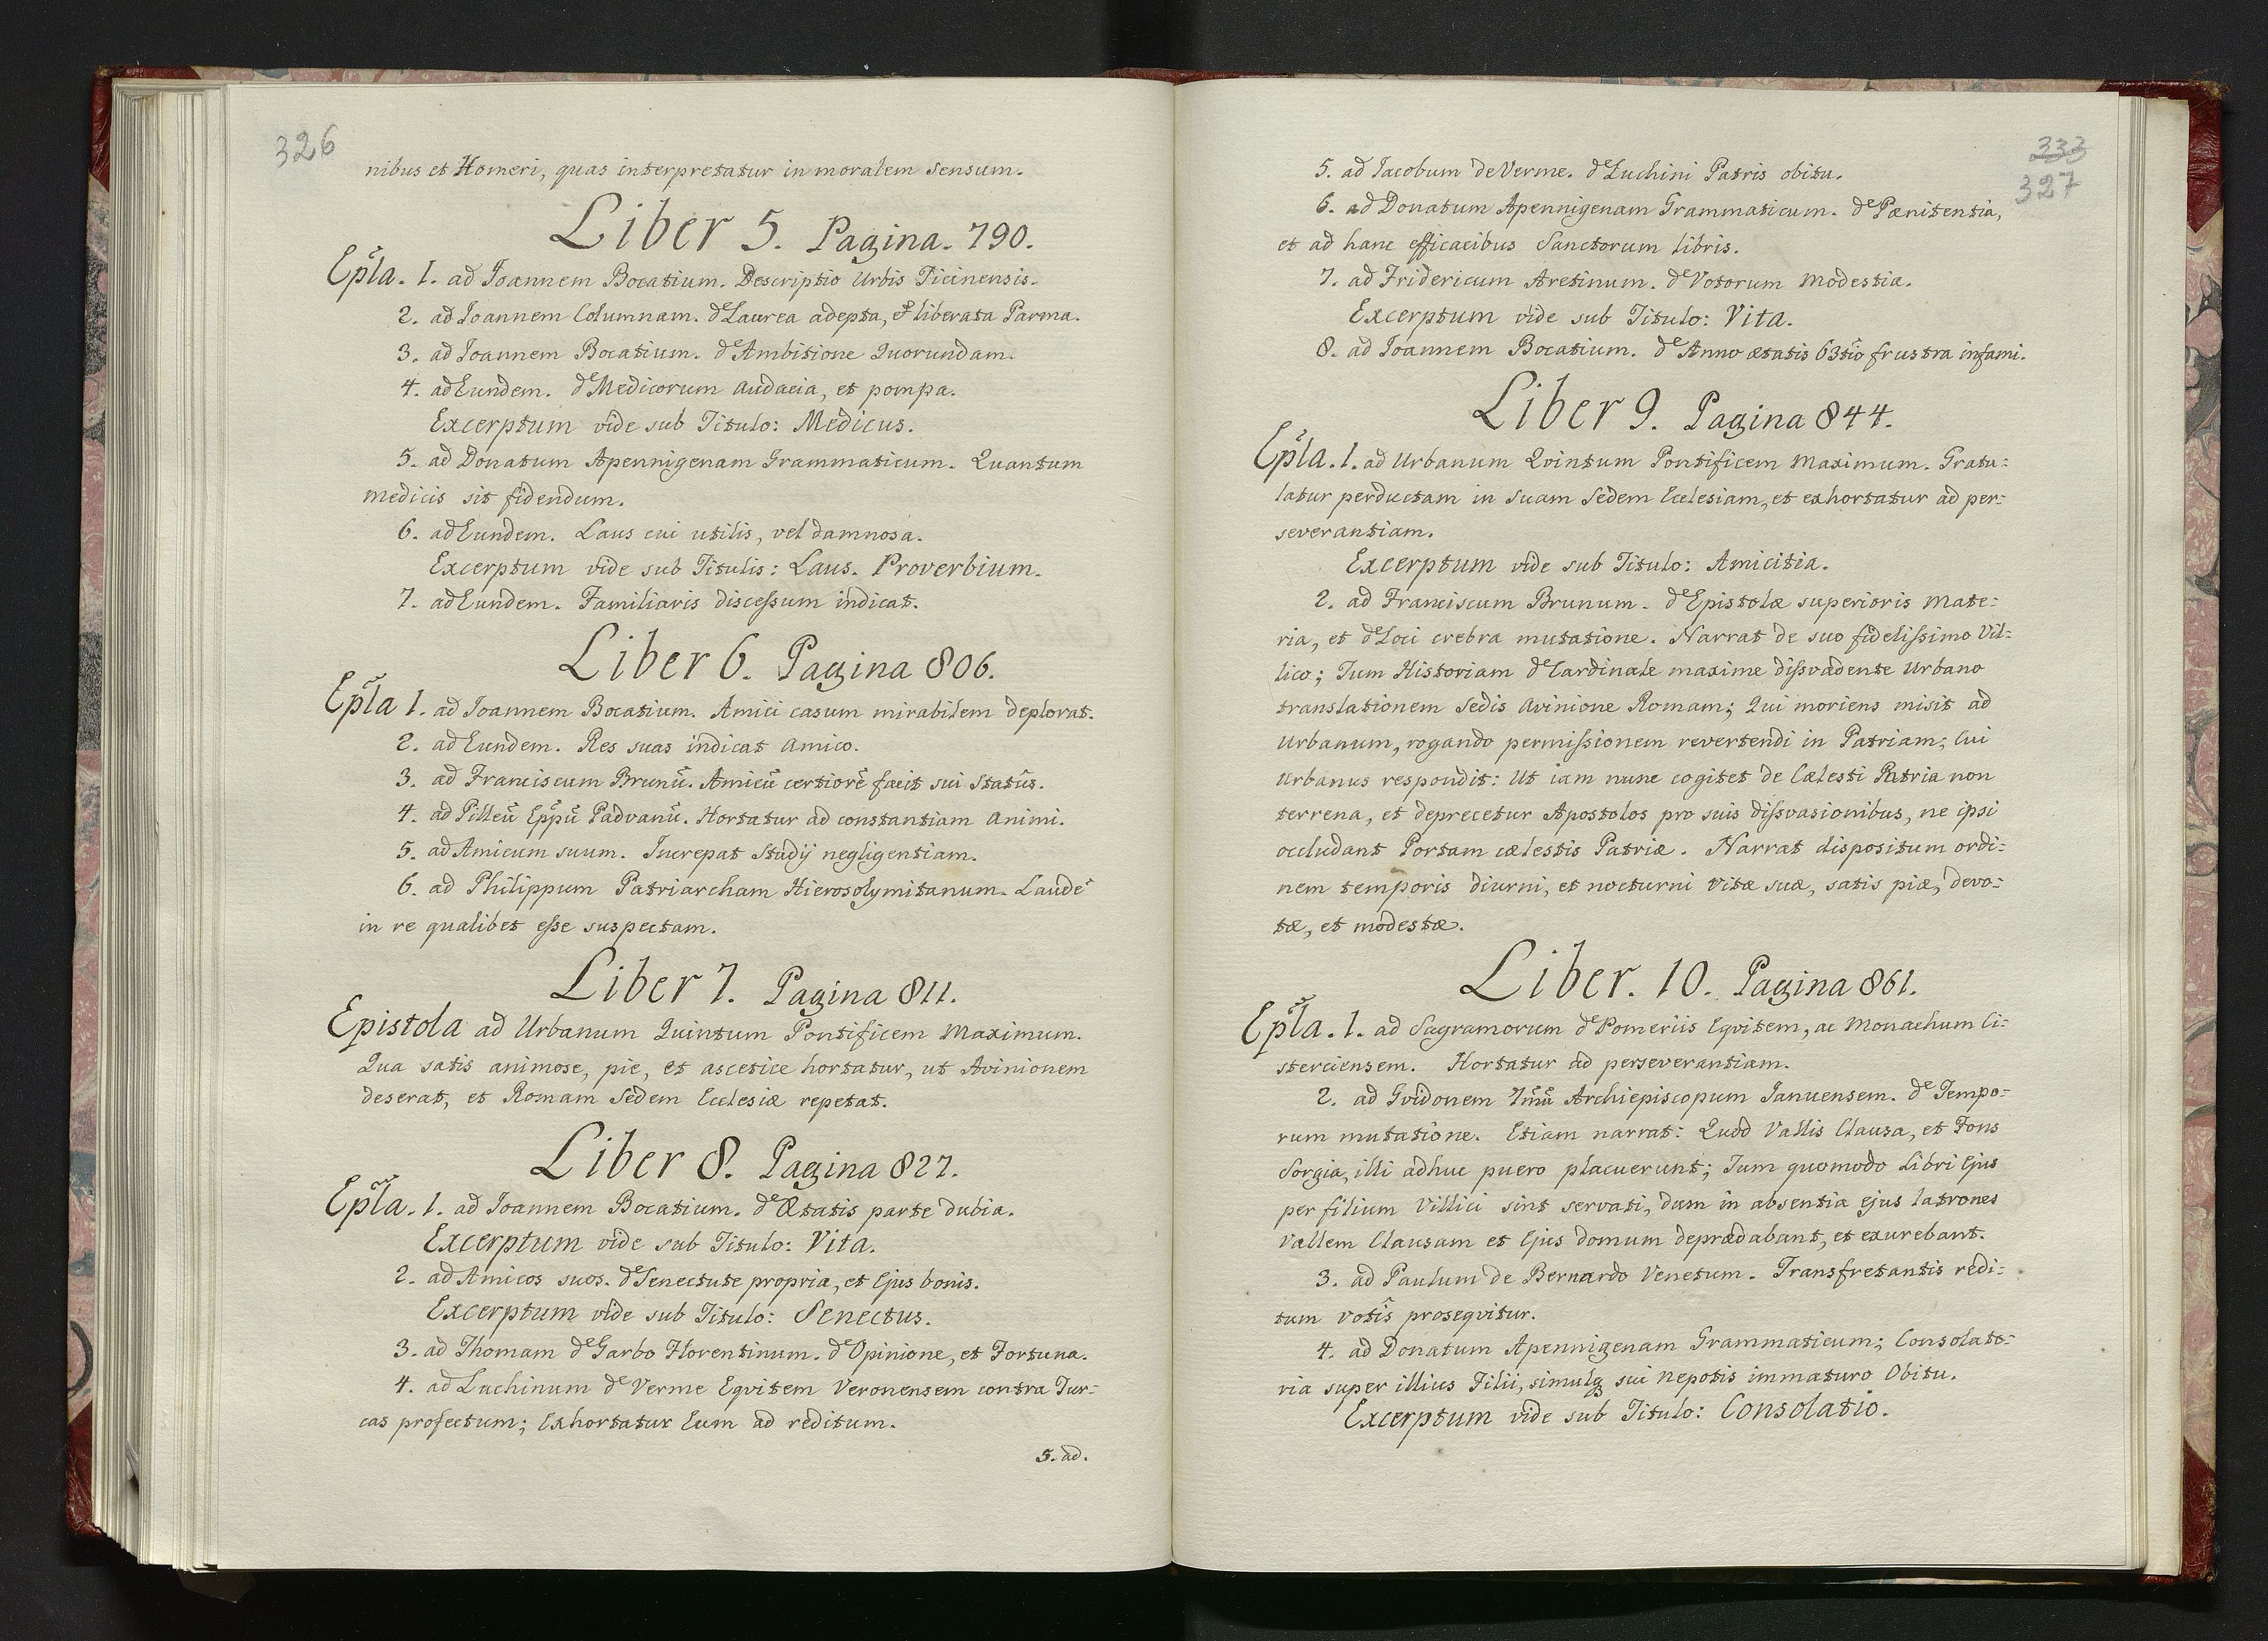 326
nibus et Homeri, quas interpretatur in moralem sensum.
Liber 5. Pagina. 790.
Epla. 1. ad Joannem Bocatium. Descriptio Urbis Ticinensis.
2. ad Joannem Columnam. de Laurea adepta, et liberata Parma.
3. ad Joannem Bocatium. de Ambitione Quorundam.
4. ad Eundem. de Medicorum audacia, et pompa.
Excerptum vide sub Titulo: Medicus.
5. ad Donatum Apennigenam Grammaticum. Quantum
medicis sit fidendum.
6. ad Eundem. Laus cui utilis, vel damnosa.
Excerptum vide sub Titulis: Laus. Proverbium.
7. ad Eundem. Familiaris discessum indicat.
Liber 6. Pagina 806.
Epla 1. ad Joannem Bocatium. Amici casum mirabilem deplorat.
2. ad Eundem. Res suas indicat amico.
3. ad Franciscum Brunū. Amicū certiorē facit sui statûs.
4. ad Pilleū Eppū Padvanū. Hortatur ad constantiam animi.
5. ad Amicum suum. Increpat Studij negligentiam.
6. ad Philippum Patriarcham Hierosolymitanum. Laudē
in re qualibet esse suspectam.
Liber 7. Pagina 811.
Epistola ad Urbanum Quintum Pontificem Maximum.
Qua satis animose, pie, et ascetice hortatur, ut Avinionem
deserat, et Romam Sedem Ecclesiæ repetat.
Liber 8. Pagina 827.
Epla. 1. ad Joannem Bocatium. de Ætatis parte dubia.
Excerptum vide sub Titulo: Vita.
2. ad Amicos suos. de Senectute propria, et Ejus bonis.
Excerptum vide sub Titulo: Senectus.
3. ad Thomam de Garbo Florentinum. de Opinione, et Fortuna.
4. ad Luchinum de Verme Eqvitem Veronensem contra Tur=
cas profectum; Exhortatur Eum ad reditum.
5. ad.
333
327
5. ad Jacobum de Verme. de Luchini Patris obitu.
6. ad Donatum Apennigenam Grammaticum. de Pænitentia,
et ad hanc efficacibus Sanctorum libris.
7. ad Fridericum Aretinum. de Votorum modestia.
Excerptum vide sub Titulo: Vita.
8. ad Joannem Bocatium. de Anno ætatis 63tio frustra infami.
Liber 9. Pagina 844.
Epla. 1. ad Urbanum Qvintum Pontificem Maximum. Gratu=
latur perductam in suam Sedem Ecclesiam, et exhortatur ad per=
severantiam.
Excerptum vide sub Titulo: Amicitia.
2. ad Franciscum Brunum. de Epistolæ superioris mate=
ria, et de Loci crebra mutatione. Narrat de suo fidelissimo Vil=
lico; Tum Historiam de Cardinale maxime dissvadente Urbano
translationem Sedis Avinione Romam; Qui moriens misit ad
Urbanum, rogando permissionem revertendi in Patriam; Cui
Urbanus respondit: Ut iam nunc cogitet de Cælesti Patria non
terrena, et deprecetur Apostolos pro suis dissvasionibus, ne ipsi
occludant Portam cælestis Patriæ. Narrat dispositum ordi=
nem temporis diurni, et nocturni Vitæ suæ, satis piæ, devo=
tæ, et modestæ.
Liber. 10. Pagina 861.
Epla. 1. ad Sagramorum de Pomeriis Eqvitem, ac Monachum Ci=
sterciensem. Hortatur ad perseverantiam.
2. ad Gvidonem 7mū Archiepiscopum Januensem. de Tempo=
rum mutatione. Etiam narrat: Quod Vallis Clausa, et Fons
Sorgia, illi adhuc puero placuerunt; Tum quomodo Libri Ejus
per filium Villici sint servati, dum in absentia Ejus latrones
Vallem Clausam et Ejus domum deprædabant, et exurebant.
3. ad Paulum de Bernardo Venetum. Transfretantis redi=
tum votîs proseqvitur.
4. ad Donatum Apennigenam Grammaticum; Consolato=
ria super illius Filii, simulq sui Nepotis immaturo Obitu.
Excerptum vide sub Titulo: Consolatio.